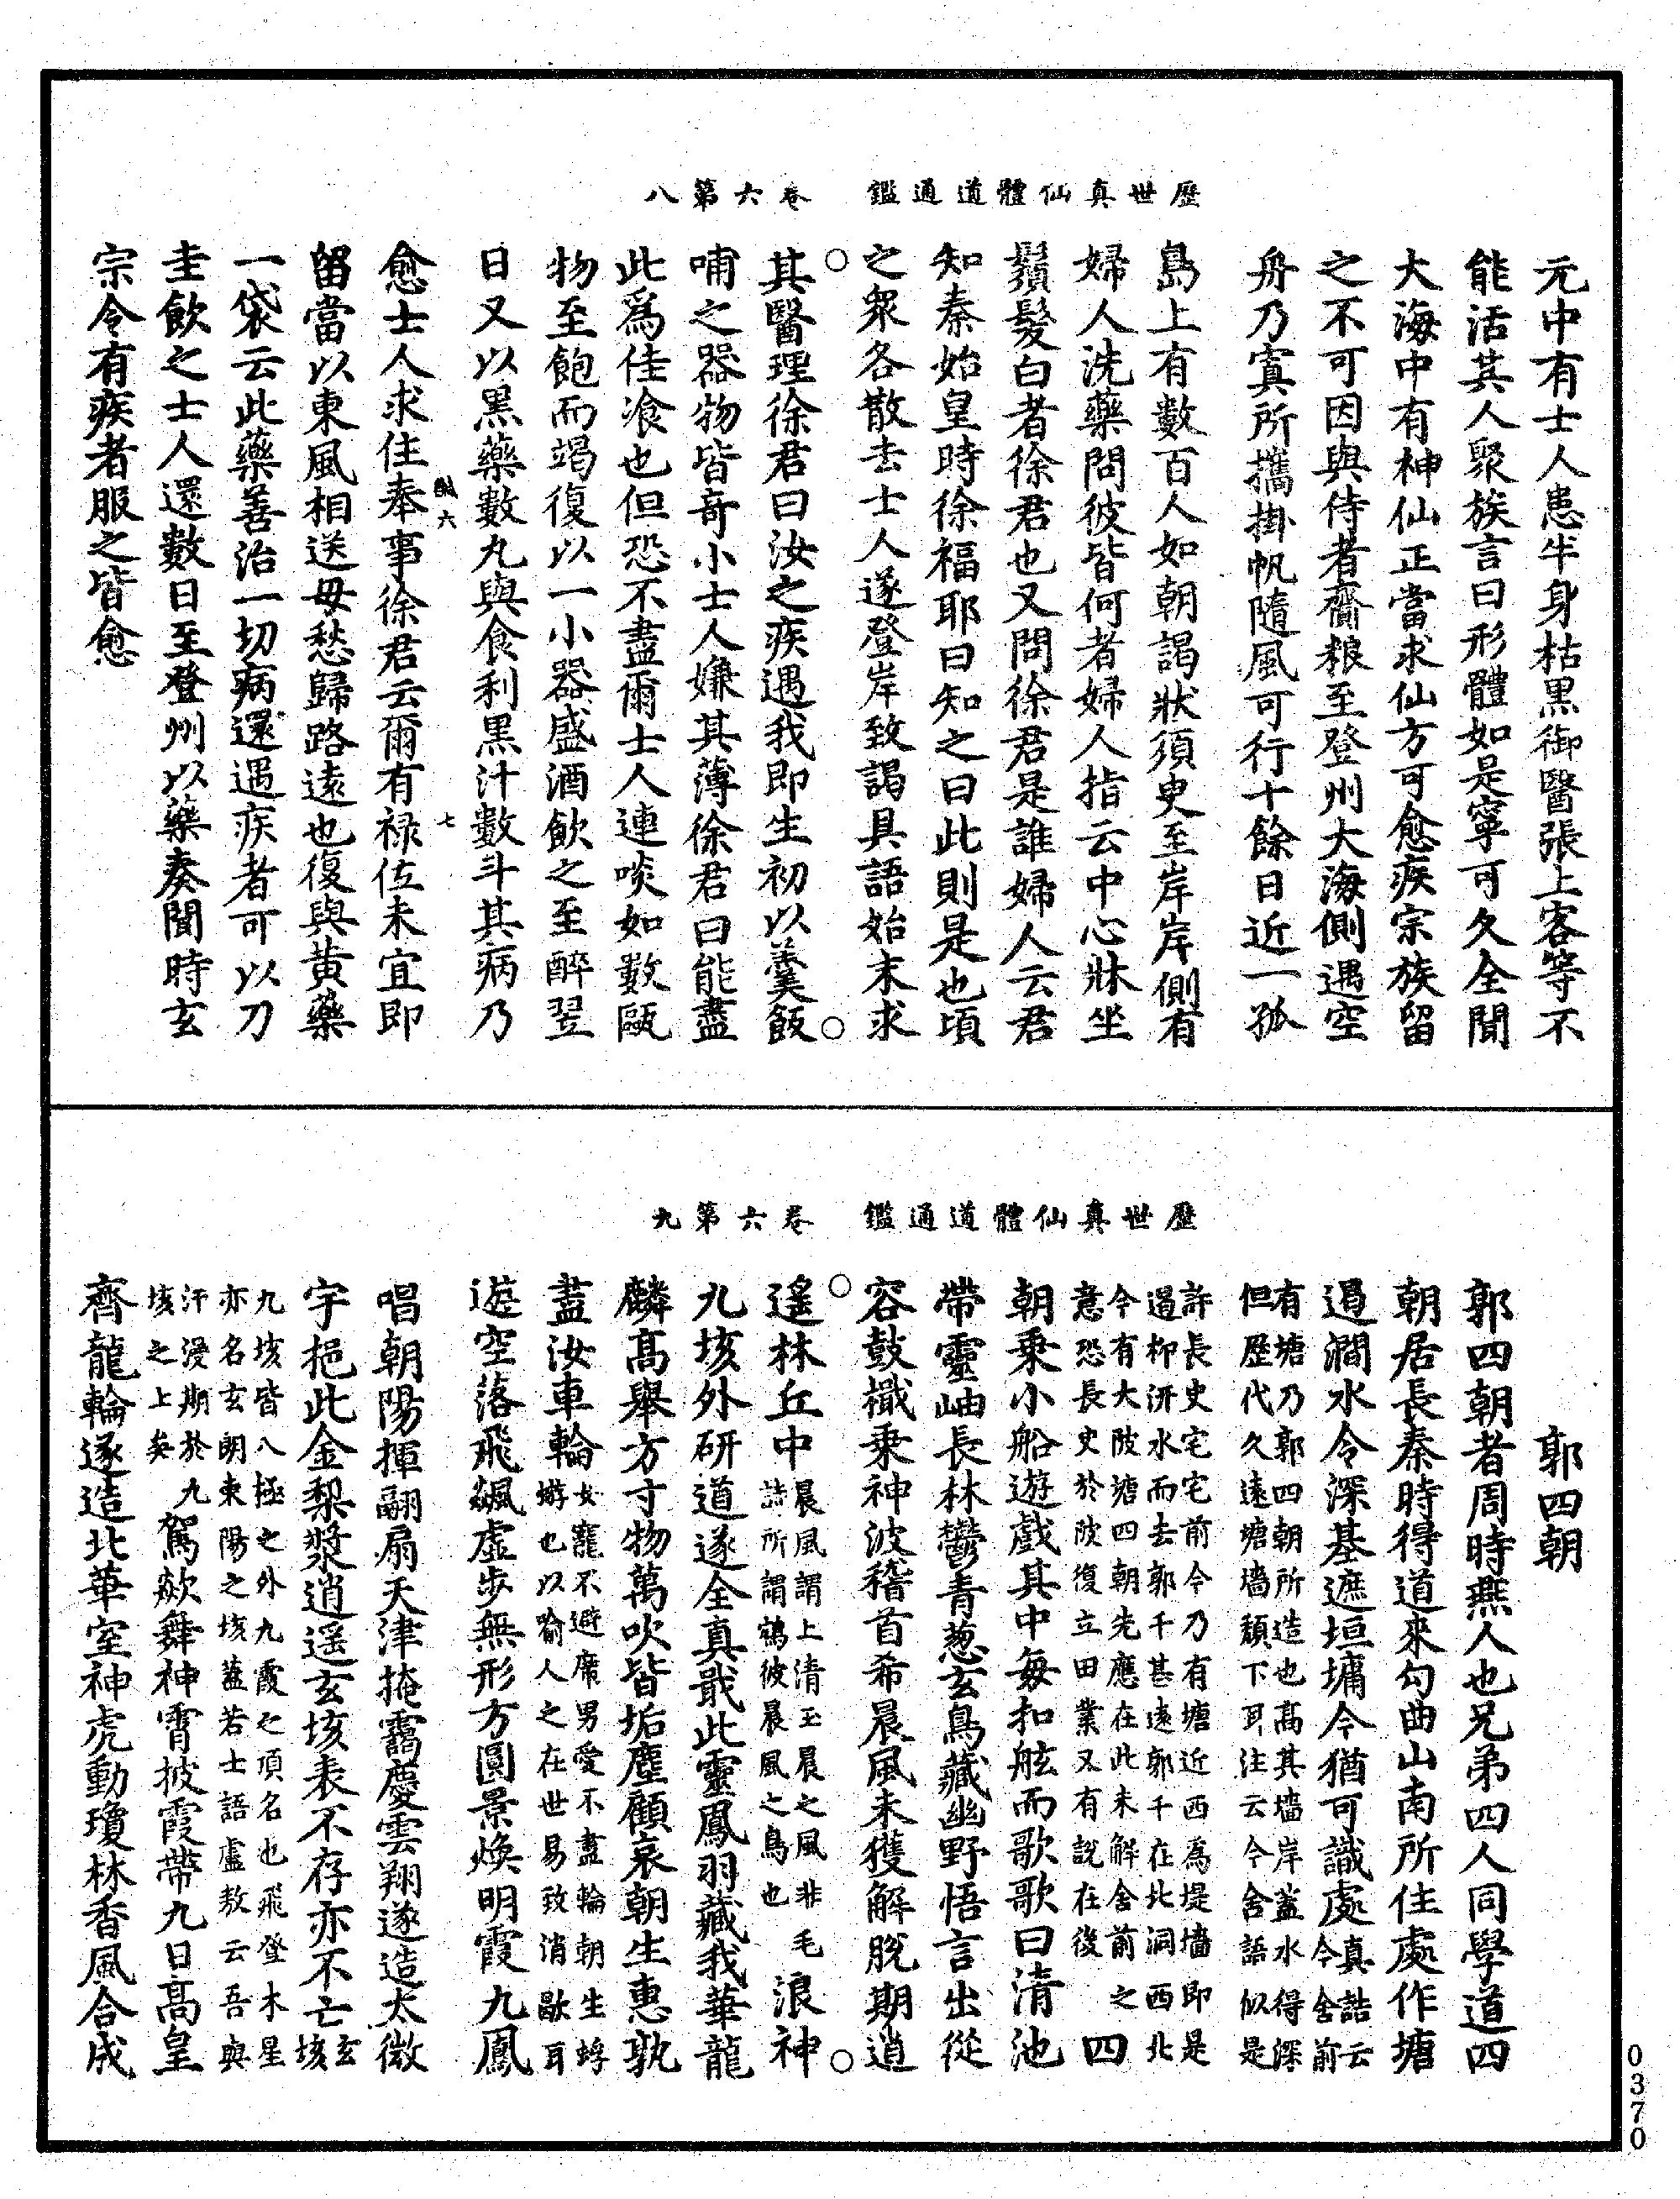 歷世真仙體道通鑑　卷六第八
元中有士人患半身枯黑御醫張上客等不
能活其人聚族言曰形體如是寧可久全聞
大海中有神仙正當求仙方可愈疾宗族留
之不可因與侍者齎粮至登州大海側遇空
舟乃寘所攜掛帆隨風可行十餘日近一孤
島上有數百人如朝謁狀須臾至岸岸側有
婦人洗藥問彼皆何者婦人指云中心牀坐
鬚髮白者徐君也又問徐君是誰婦人云君
知秦始皇時徐福耶曰知之曰此則是也頃
之衆各散去士人遂登岸致謁具語始末求
其醫理徐君曰汝之疾遇我即生初以羹飯
哺之器物皆奇小士人嫌其薄徐君曰能盡
此爲佳飡也但恐不盡爾士人連啖如數甌
物至飽而竭復以一小器盛酒飲之至醉翌
日又以黑藥數丸與食利黑汁數斗其病乃
愈士人求住奉事徐君云爾有禄位未宜即
留當以東風相送毋愁歸路遠也復與黃藥
一袋云此藥善治一切病還遇疾者可以刀
圭飲之士人還數日至登州以藥奏聞時玄
宗令有疾者服之皆愈
歷世真仙體道通鑑　卷六第九
郭四朝
郭四朝者周時燕人也兄弟四人同學道四
朝居長秦時得道來勾曲山南所住處作塘
遏澗水令深基遮垣墉今猶可識處真誥云今舍前
有塘乃郭四朝所造也高其墻岸蓋水得深但歷代久遠塘墻頹下耳注云今舍語似是
許長史宅宅前今乃有塘近西爲堤墻即是遏柳汧水而去郭千甚遠郭千在北洞西北
今有大陂塘四朝先應在此未解舍前之意恐長史於陂復立田業又有說在後四
朝乗小船遊戲其中每扣舷而歌歌曰清池
帶靈岫長林鬱青葱玄鳥藏幽野悟言出從
容鼓檝乗神波稽首希晨風未獲解脫期逍
遙林丘中晨風謂上清玉晨之風非毛詩所謂鴥彼晨風之鳥也浪神
九垓外研道遂全真戢此靈鳳羽藏我華龍
麟高舉方寸物萬吹皆垢塵顧哀朝生惠孰
盡汝車輪女寵不避席男愛不盡輪朝生蜉蝣也以喻人之在世易致消歇耳
遊空落飛飆虛步無形方圓景煥明霞九鳳
唱朝陽揮翮扇天津掩靄慶雲翔遂造太微
宇挹此金梨漿逍遥玄垓表不存亦不亡玄垓
九垓皆八極之外九霞之頂名也飛登木星亦名玄朗東陽之垓蓋若士語盧敖云吾與
汗漫期於九垓之上矣駕歘舞神霄披霞帶九日高皇
齊龍輪遂造北華室神虎動瓊林香風合成
0370